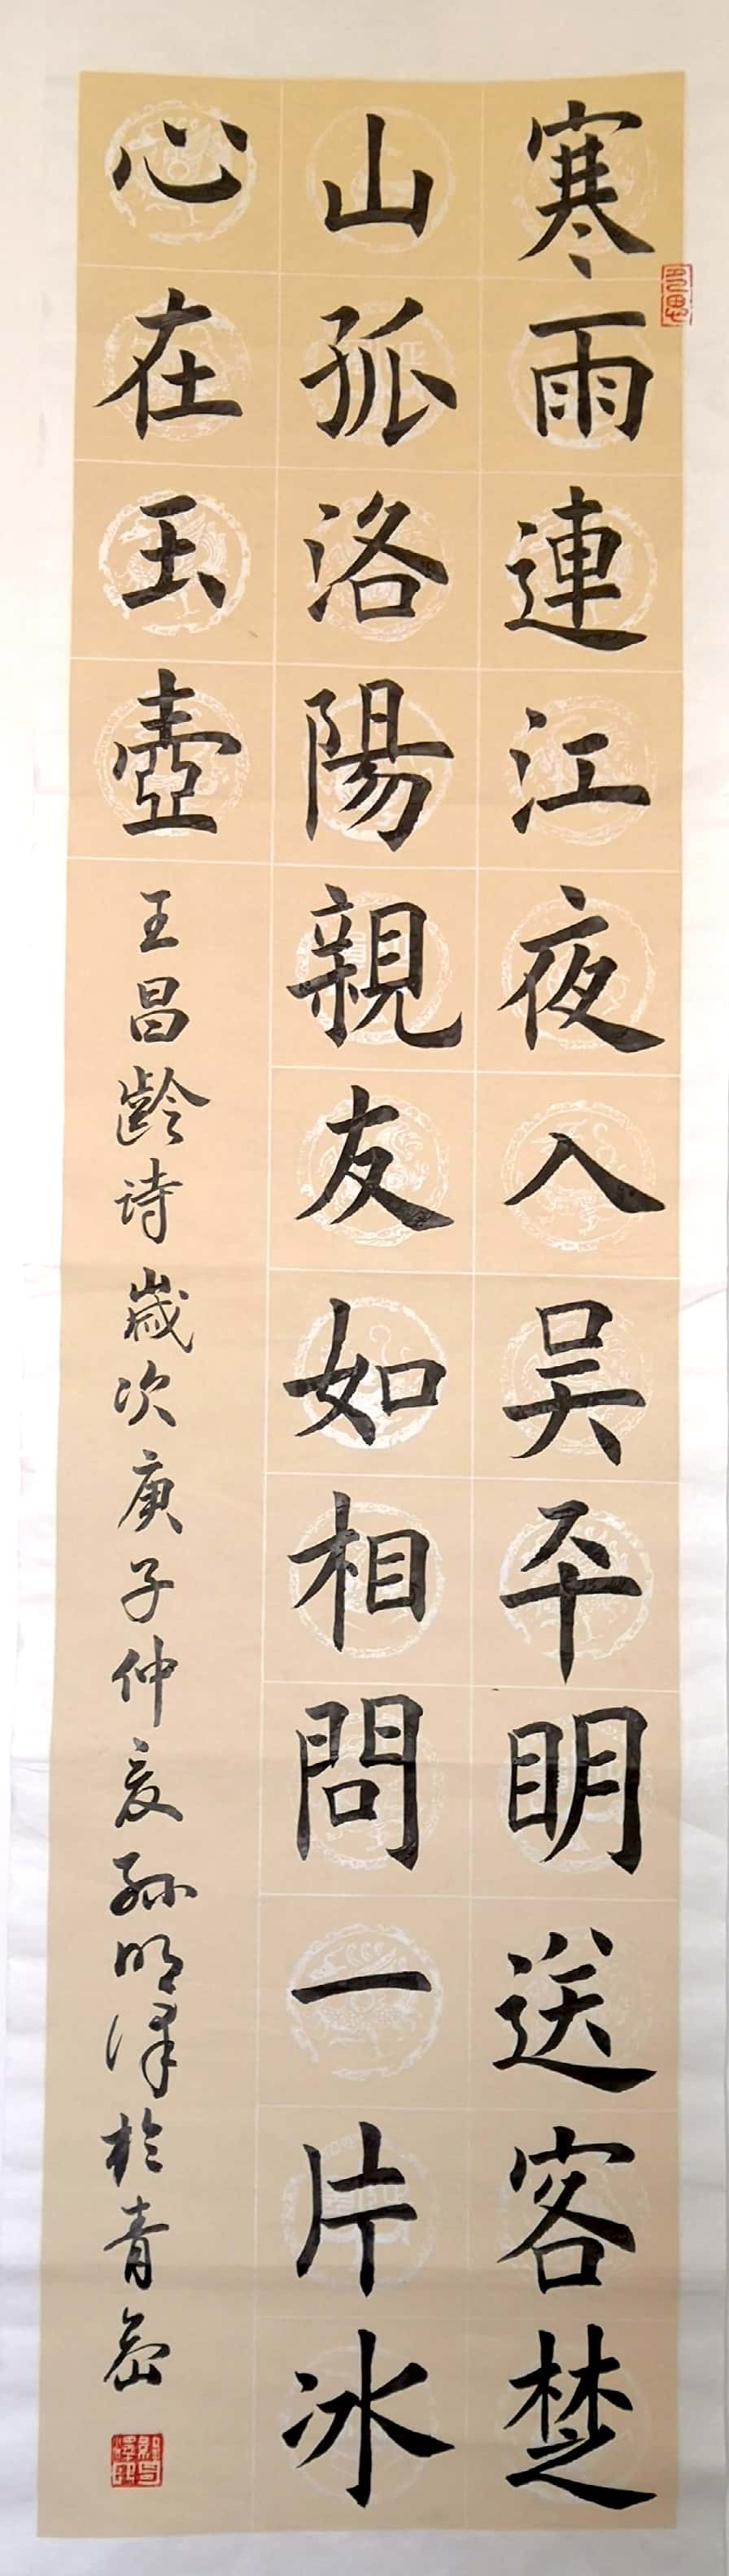 寒雨連江夜入吴平眀送客楚
山孤洛陽親友如相問一片冰
心在玉壺
王昌齡诗歲次庚子仲夏孫明澤於青島